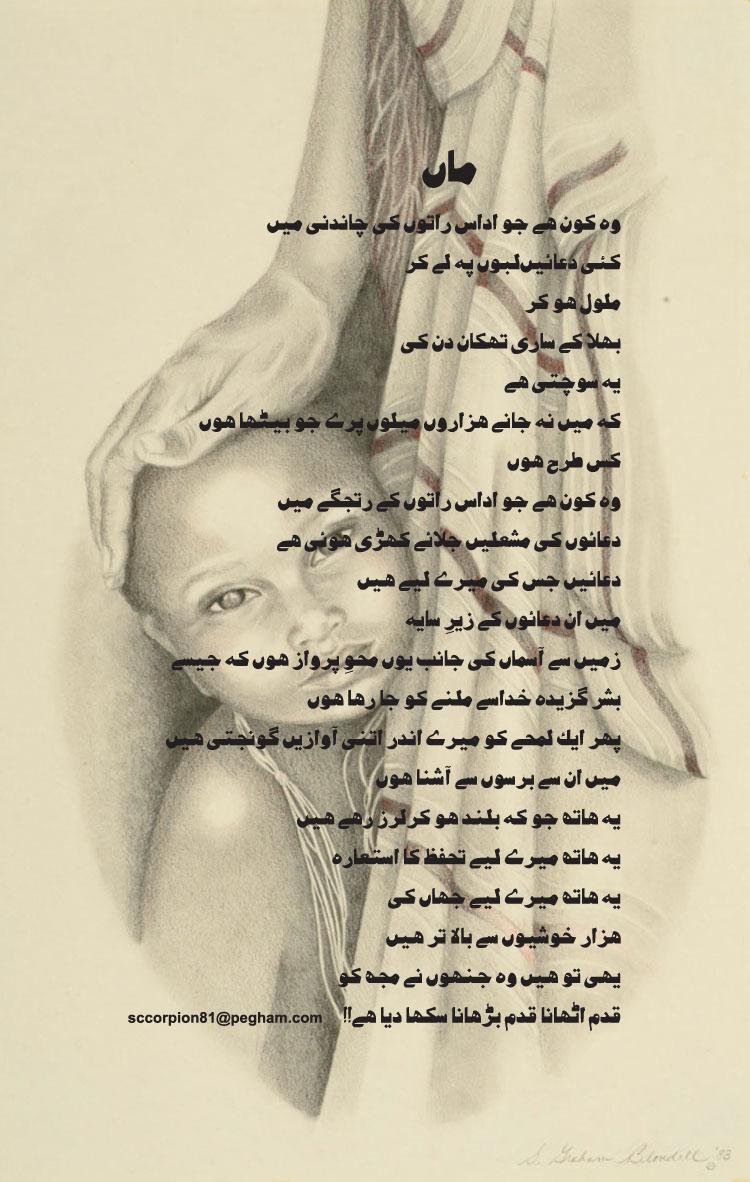 ماں
وہ کون ھے جو اداس راتوں کی چاندنی میں
کئی دعائیں لبوں پہ لے کر
ملول ھو کر
بھلا کے ساری تھکان دن کی
یہ سوچتی ھے
کہ میں نہ جانے ھزاروں میلوں پرے جو بیٹھا ھوں
کس طرح ھوں
وہ کون ھے جو اداس راتوں کے رتجگے میں
دعائوں کی مشعلیں جلائے کھڑی ھوئی ھے
دعائیں جس کی میرے لیے ھیں
میں ان دعائوں کے زیرِ سایہ
زمیں سے آسماں کی جانب یوں محوِ پرواز ھوں کہ جیسے
بشر گزیدہ خداسے ملنے کو جا رھا ھوں
پھر ایك لمحے کو میرے اندر اتنی آوازیں گونجتی ھیں
میں ان سے برسوں سے آشنا ھوں
یہ ھاتھ جو کہ بلند ھو کر لرز رھے ھیں
یہ ھاتھ میرے لیے تحفظ کا استعارہ
یہ ھاتھ میرے لیے جھاں کی
ھزار خوشیوں سے بالا تر ھیں
یھی تو ھیں وہ جنھوں نے مجھ کو
قدم اٹھانا قدم بڑھانا سکھا دیا ھے!! sccorpion81@pegham.com
S. Graham Blondell '83 ©